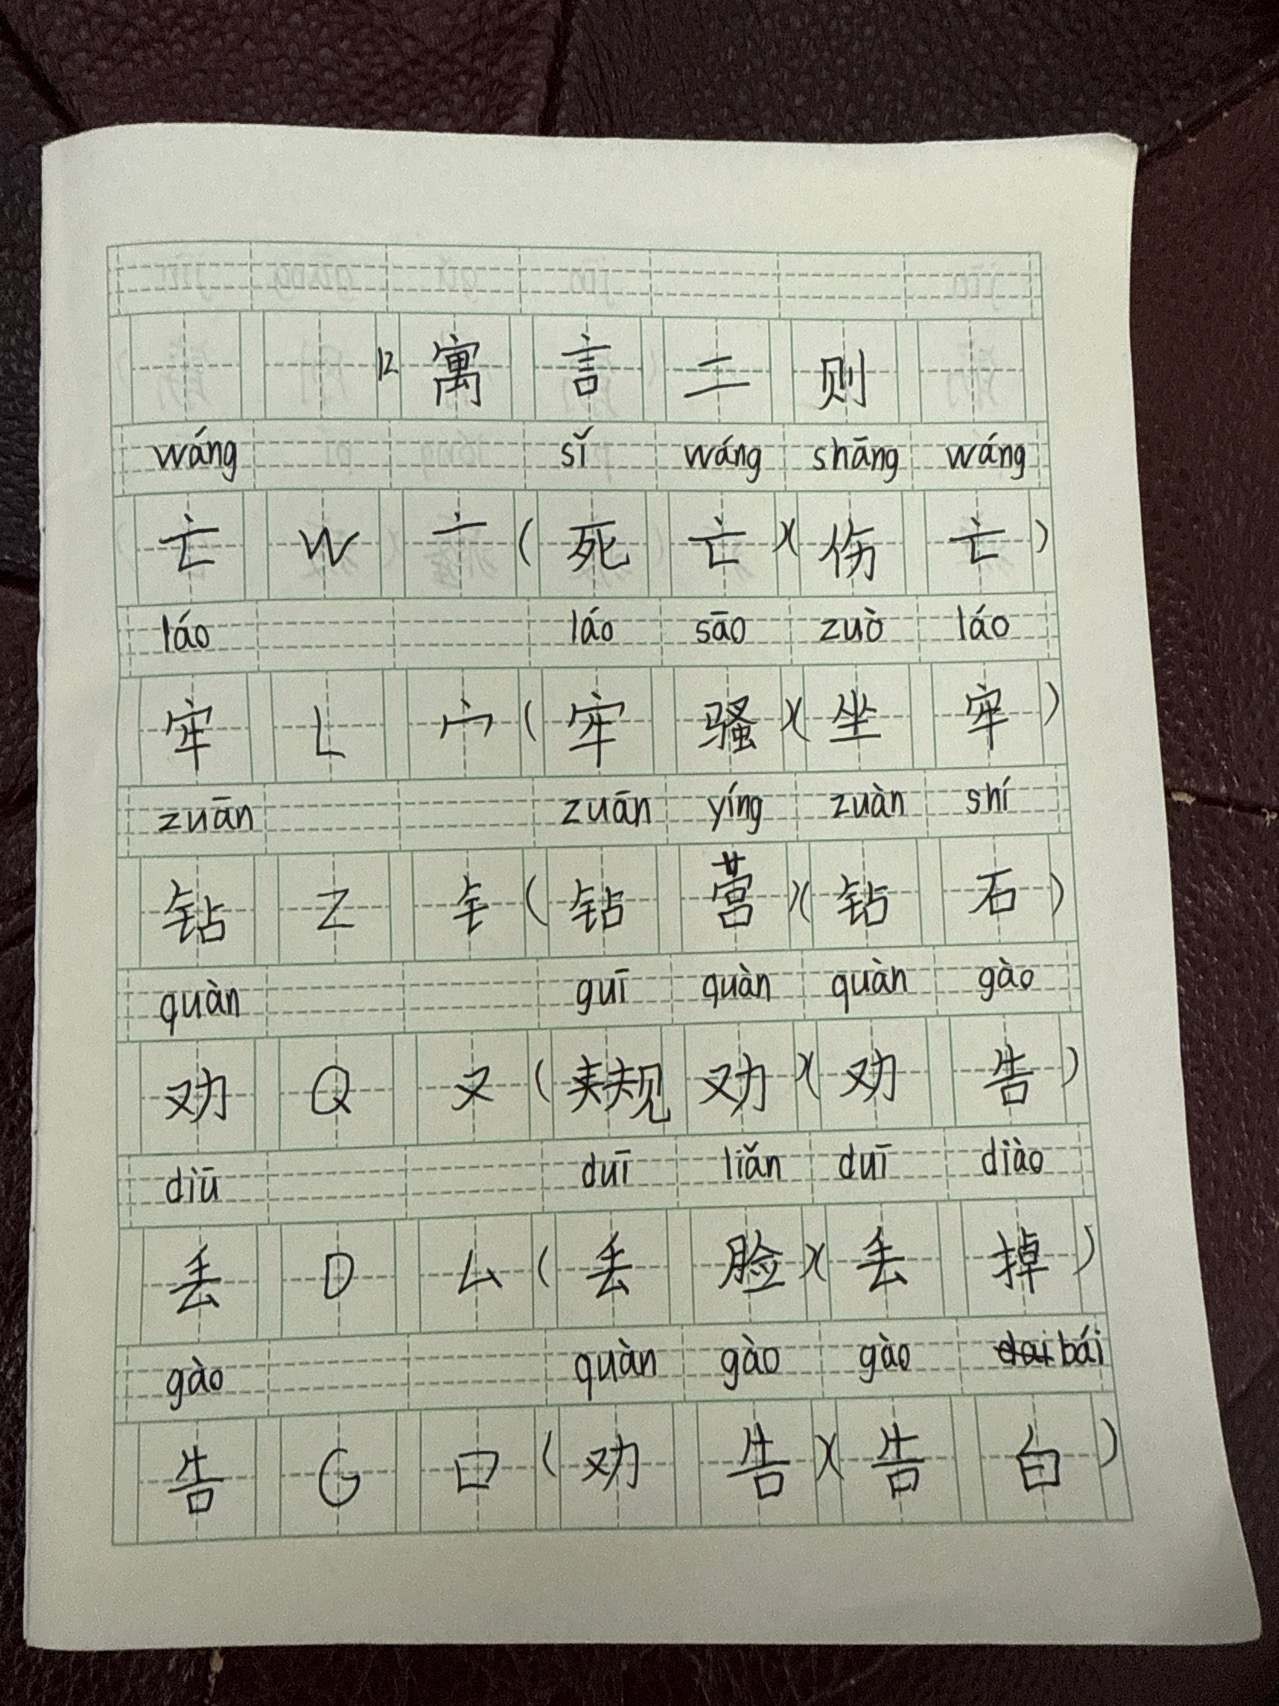 12 寓言二则
wáng sǐ wáng shāng wáng
亡 W 亠 (死亡)(伤亡)
láo láo sāo zuò láo
牢 L 宀 (牢骚)(坐牢)
zuān zuān yíng zuàn shí
钻 Z 钅 (钻营)(钻石)
quàn guī quàn quàn gào
劝 Q 又 (规劝)(劝告)
diū duī liǎn duī diào
丢 D 厶 (丢脸)(丢掉)
gào quàn gào gào bái
告 G 口 (劝告)(告白)